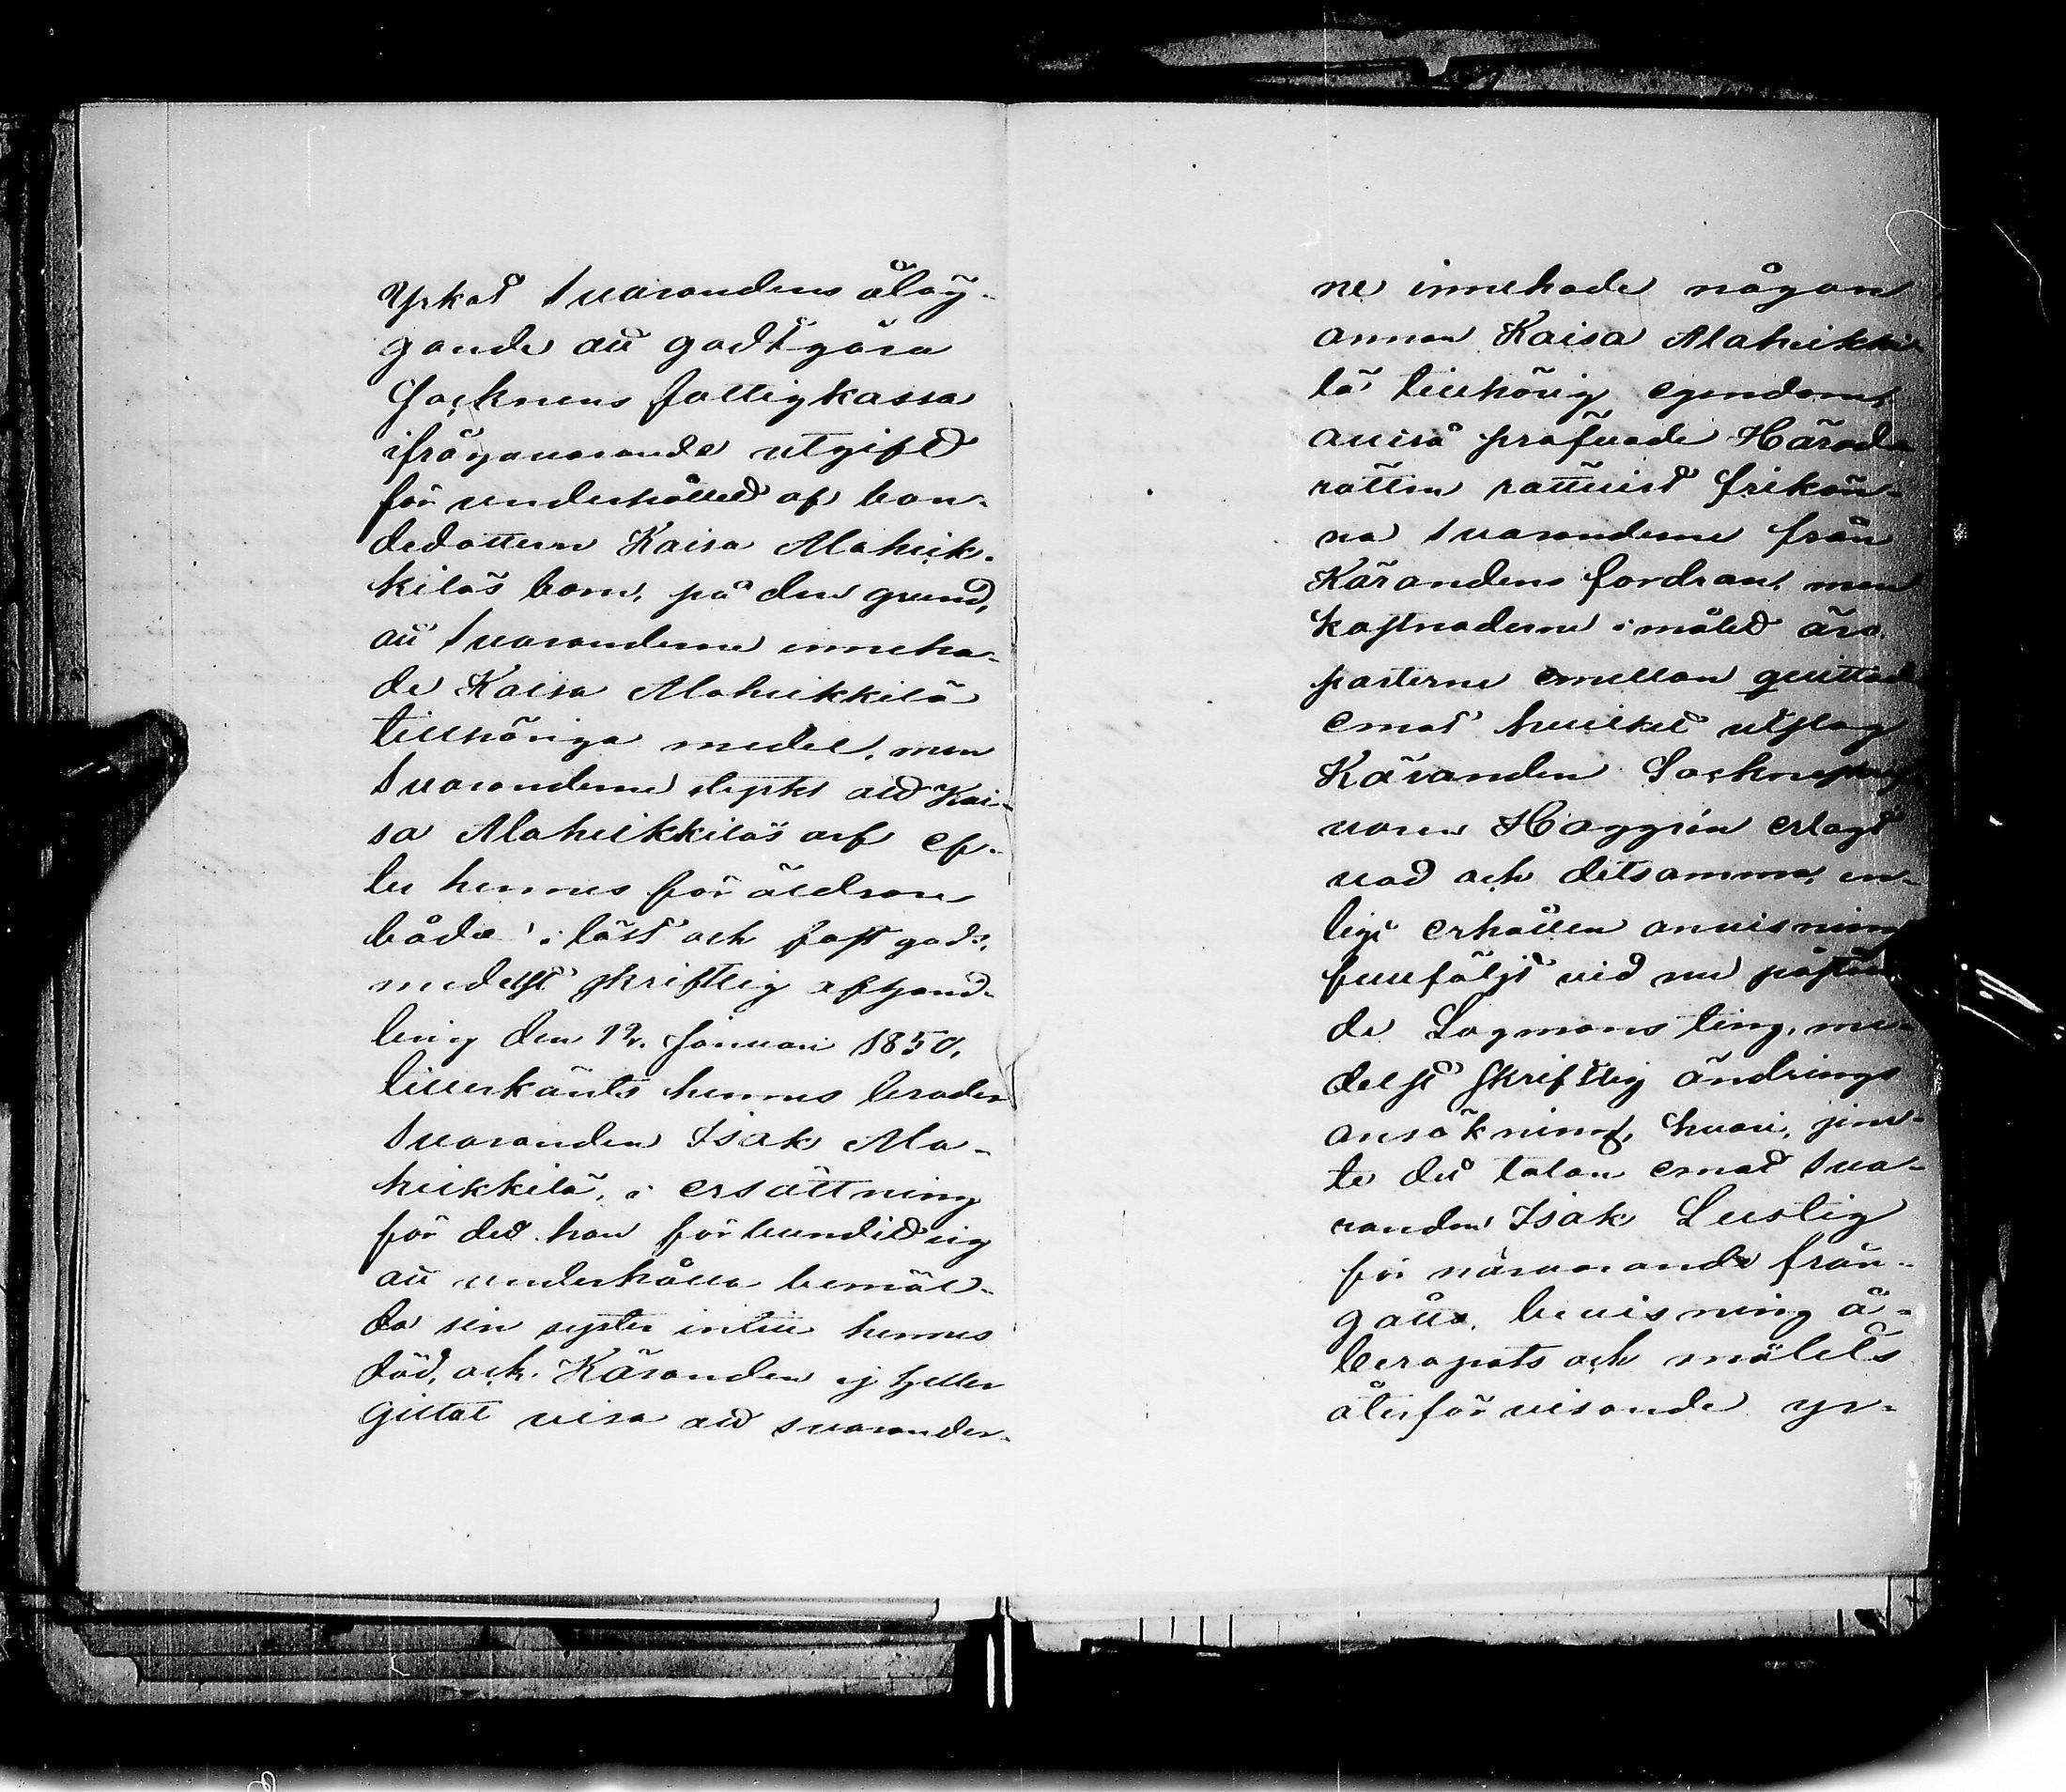 yrkat Svarandens åläg-
gande att godtgöra
Socknens fattigkassa
ifrågavarande utgift
för underhållet af bon-
dedottern Kaisa Alaheik-
kiläs barn, på den grund,
att Svaranderne inneha-
de Kaisa Alaheikkilä
tillhöriga medel, men
Svaranderne styrkt att Kai-
sa Alaheikkiläs arf ef-
ter hennes föräldrar
både i löst och fast gods,
medelst skriftlig afhand-
ling den 12. Januari 1850,
tillerkänts hennes broder
Svaranden Isak Ala-
heikkilä, i ersättning
för det han förbundit sig
att underhålla bemäl-
da sin syster intill hennes
död, och Käranden ej heller
gittat visa att svarander-
ne innehade någon
annan Kaisa Alaheikki-
lä tillhörig egendom,
altså pröfvade Härads
rätten rättvist frikän-
na Svaranderne från
Kärandens fordran, men
kostnaderne i målet äro
parterne emellan quittade
emot hvilket utslag
Käranden Sockne
Haggrén erlagt
vad och detsamma, en-
ligt erhållen anvisning
fullföljt vid nu påstån-
de Lagmans ting, me-
delst skriftlig ändrings
ansökning, hvari, jem-
te det talan emot Sva-
randen Isak Lustig
för närvarande från-
gåtts, bevisning å-
beropats och målets
återförvisande yr-